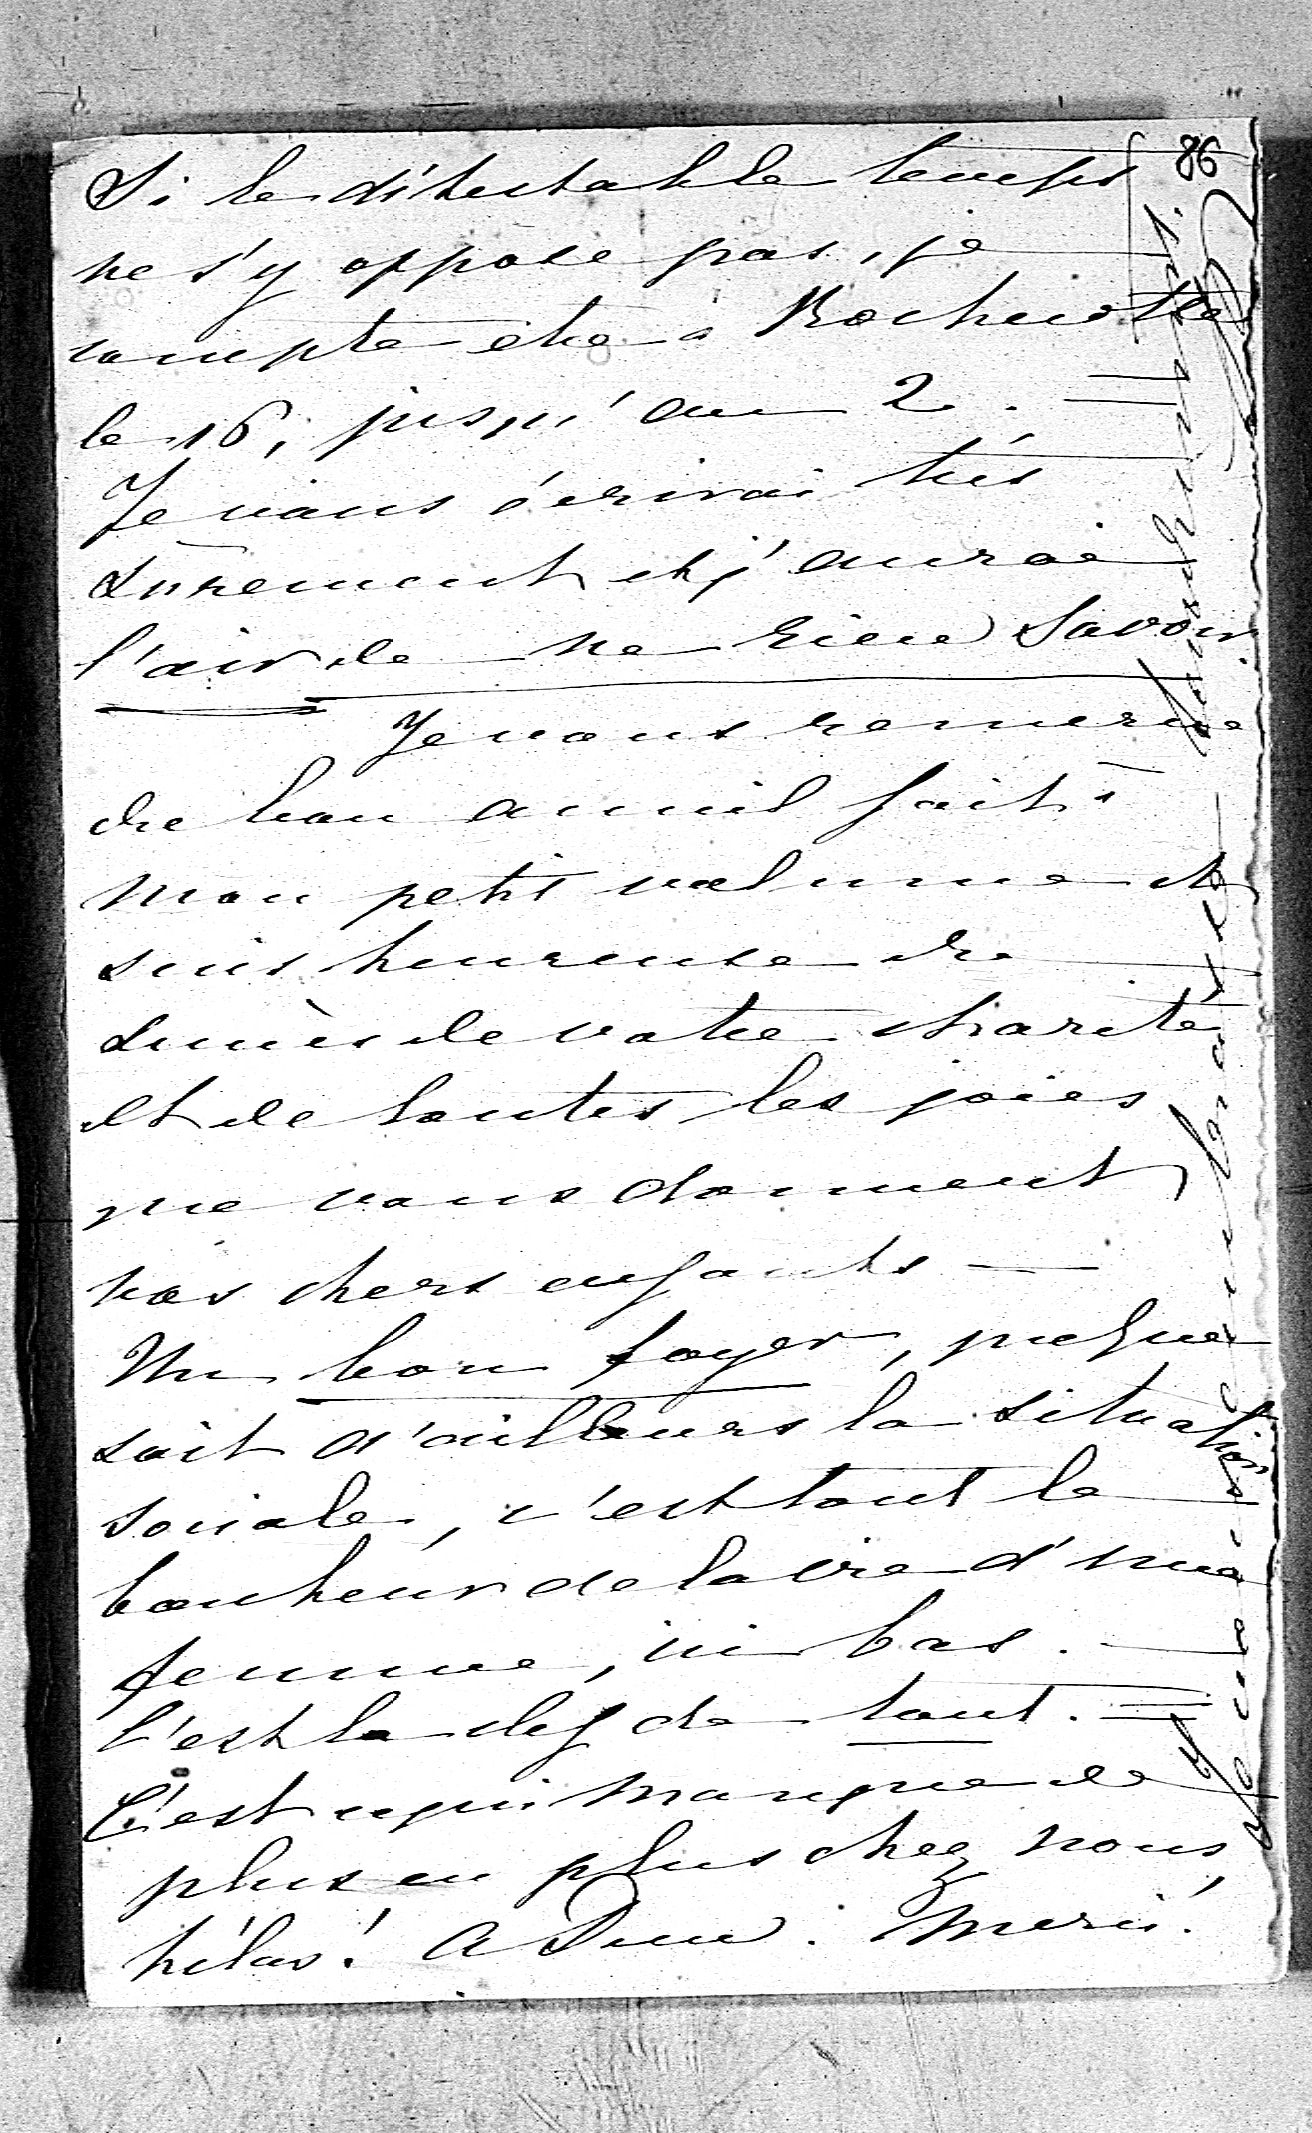 86
Si le détestable temps
ne s'y oppose pas, je
compte être à Rochecotte
le 16, jusqu'au 2.
Je vous écrirai très
sûrement et j'aurai
l'air de ne rien savoir
Je vous remercie
du bon accueil fait à
mon petit volume et
suis heureuse du
succès de votre charité
et de toutes les joies
que vous donnent
vos chers enfants —
Un bon foyer, quelque
soit d'ailleurs la situation
sociale, c'est tout le
bonheur de la vie d'une
femme, ici bas.
C'est la clef de tout.
C'est ce qui manque de
plus en plus chez nous,
hélas! A Dieu. Merci!
Je vous embrasse tendrement.